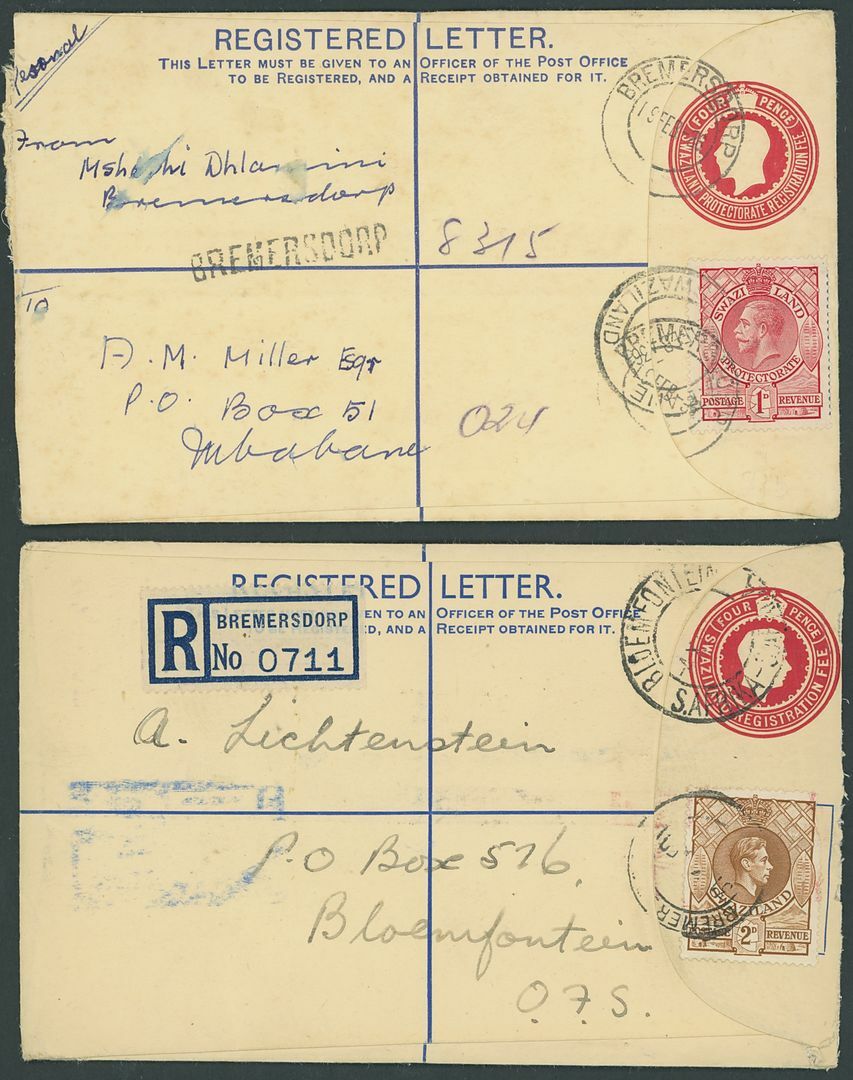 Pesonal
REGISTERED LETTER.
THIS LETTER MUST BE GIVEN TO AN OFFICER OF THE POST OFFICE
TO BE REGISTERED, AND A RECEIPT OBTAINED FOR IT.
BREMERSDORP
FOUR PENCE
SWAZILAND PROTECTORATE REGISTRATION FEE
From
Dhlamini
Bremersdorp
BREMERSDORP
8315
SWAZILAND
SWAZILAND
PROTECTORATE
POSTAGE 1D REVENUE
TO
A. M. Miller Esqr
P.O. Box 51
Mbabane
024
REGISTERED LETTER.
EN TO AN OFFICER OF THE POST OFFICE
D, AND A RECEIPT OBTAINED FOR IT.
R BREMERSDORP
No 0711
BLOEMFONTEIN
FOUR PENCE
REGISTRATION FEE
A. Lichtenstein
P.O Box 516,
Bloemfontein
O.F.S.
BREMER
SWAZILAND
2D REVENUE